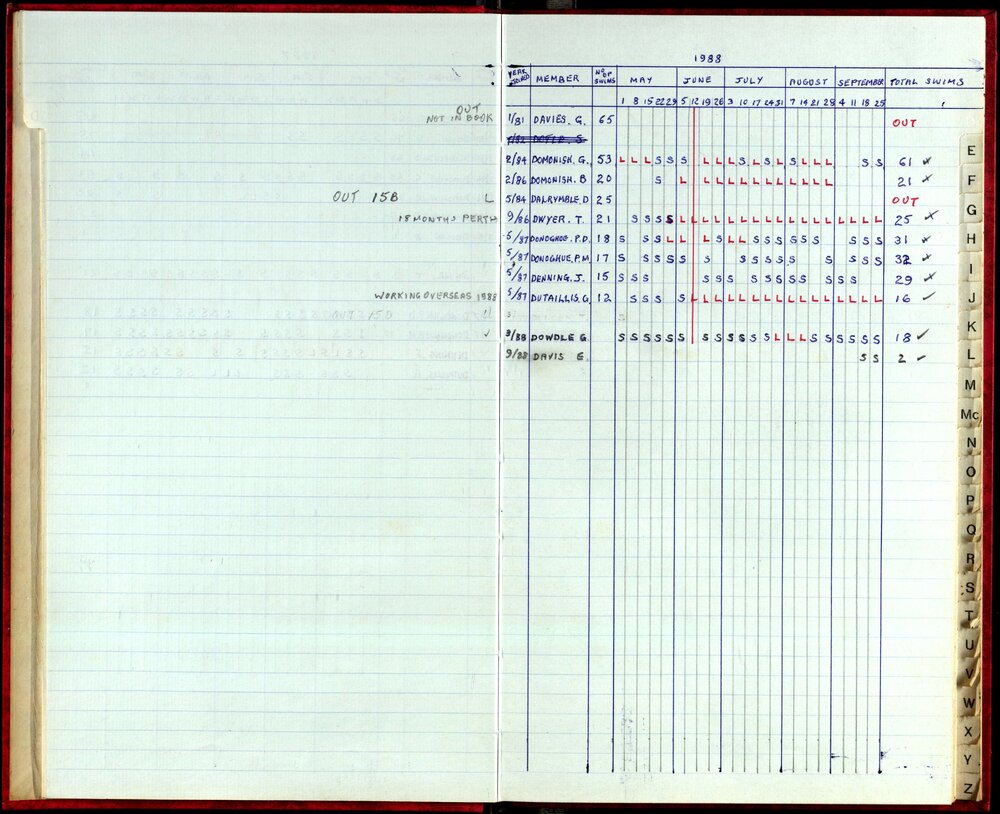 1988
YEAR JOINED MEMBER NO OF SWIMS MAY JUNE JULY AUGUST SEPTEMBER TOTAL SWIMS
1 8 15 22 29 5 12 19 26 3 10 17 24 31 7 14 21 28 4 11 18 25
OUT
NOT IN BOOK 1/81 DAVIES. G. 65 OUT
2/84 DOMONISH. G. 53 L L L S S S L L L S L S L S L L L S S 61
2/86 DOMONISH. B 20 S L L L L L L L L L L L L 21
OUT 15B L 5/84 DALRYMBLE. D 25 OUT
18 MONTHS PERTH 9/86 DWYER. T. 21 S S S S L L L L L L L L L L L L L L L L L 25
5/87 DONOGHOE. P.D. 18 S S S L L L S L L S S S S S S S S S 31
5/87 DONOGHUE. P.M 17 S S S S S S S S S S S S S S S 32
5/87 DENNING. J. 15 S S S S S S S S S S S S S S 29
WORKING OVERSEAS 1988 5/87 DUTAILLIS. G. 12 S S S S L L L L L L L L L L L L L L L L 16 ✓
✓ 3/88 DOWDLE G S S S S S S S S S S S S S L L L S S S S S S 18 ✓
9/88 DAVIS G. S S 2 ✓
E
F
G
H
I
J
K
L
M
Mc
N
O
P
Q
R
S
T
U
V
W
X
Y
Z